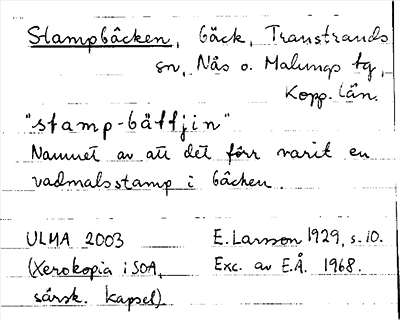 Stampbäcken, bäck, Transtrands
sn, Nås o. Malungs tg,
Kopp. län.
"stamp-bättjin"
Namnet av att det förr varit en
vadmalsstamp i bäcken.
ULMA 2003 E. Larsson 1929, s. 10.
(Xerokopia i SOA, Exc. av E.Å. 1968.
särsk. kapsel)